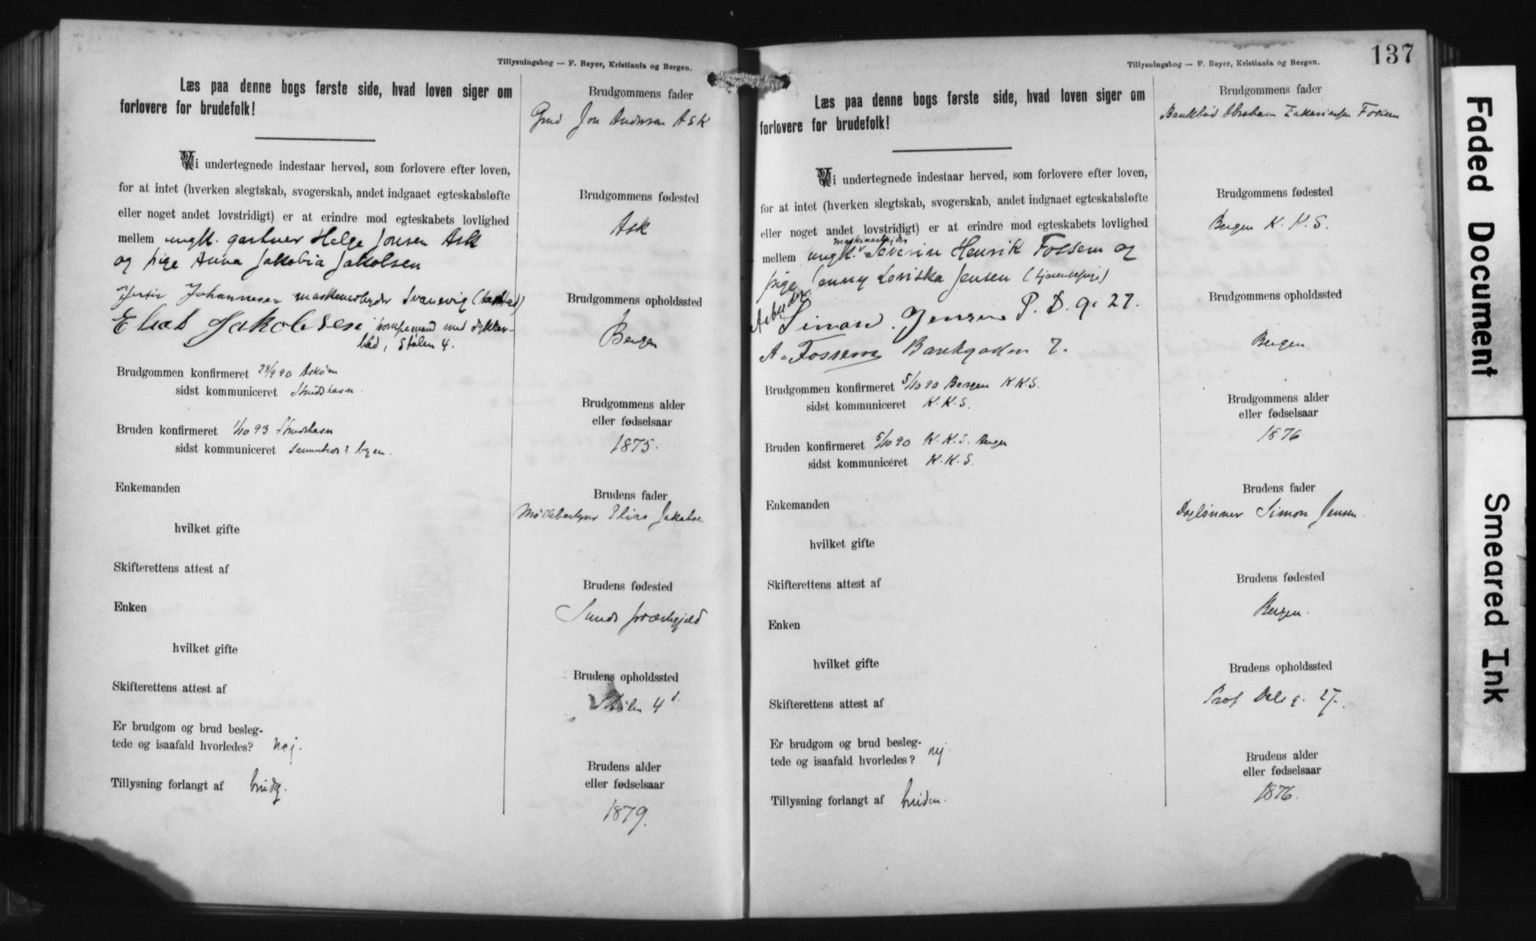 Tillysningsbog — F. Beyer, Kristiania og Bergen.
Læs paa denne bogs første side, hvad loven siger om
forlovere for brudefolk!
Vi undertegnede indestaar herved, som forlovere efter loven,
for at intet (hverken slegtskab, svogerskab, andet indgaaet egteskabsløfte
eller noget andet lovstridigt) er at erindre mod egteskabets lovlighed
mellem ungk. gartner Helge Jonsen Ask
og pige Anna Jakobia Jakobsen
Johannesen maskinarbeider Svanevig
Elias Jakobsen pompemand med dykker-
båd, Stølen 4.
Brudgommen konfirmeret 28/9 90 Askøen
sidst kommuniceret
Bruden konfirmeret 1/10 93
sidst kommuniceret
Enkemanden
hvilket gifte
Skifterettens attest af
Enken
hvilket gifte
Skifterettens attest af
Er brudgom og brud besleg-
tede og isaafald hvorledes? nej.
Tillysning forlangt af brudg.
Brudgommens fader
Gmd Jon Andersen Ask
Brudgommens fødested
Ask
Brudgommens opholdssted
Bergen
Brudgommens alder
eller fødselsaar
1875.
Brudens fader
Elias Jakobsen
Brudens fødested
Sunds præstegjeld
Brudens opholdssted
Stølen 4
Brudens alder
eller fødselsaar
1879.
137
Tillysningsbog — F. Beyer, Kristiania og Bergen.
Læs paa denne bogs første side, hvad loven siger om
forlovere for brudefolk!
Vi undertegnede indestaar herved, som forlovere efter loven,
for at intet (hverken slegtskab, svogerskab, andet indgaaet egteskabsløfte
eller noget andet lovstridigt) er at erindre mod egteskabets lovlighed
maskinarbeider
mellem ungk. Severin Henrik Fossem og
pige Jenny Loviska Jensen (tjenestepige)
Arbeider
Simon Jensen P. D. g. 27.
A. Fossem Bankgaden 7.
Brudgommen konfirmeret 5/10 90 Bergen K K S.
sidst kommuniceret K. K. S.
Bruden konfirmeret 5/10 90 K. K. S. Bergen
sidst kommuniceret K. K. S.
Enkemanden
hvilket gifte
Skifterettens attest af
Enken
hvilket gifte
Skifterettens attest af
Er brudgom og brud besleg-
tede og isaafald hvorledes? nej
Tillysning forlangt af bruden.
Brudgommens fader
Bankbud Abraham Zakariassen Fossem
Brudgommens fødested
Bergen K. K. S.
Brudgommens opholdssted
Bergen
Brudgommens alder
eller fødselsaar
1876
Brudens fader
Daglønner Simon Jensen
Brudens fødested
Bergen.
Brudens opholdssted
Prof Dals g. 27.
Brudens alder
eller fødselsaar
1876.
Faded Document
Smeared Ink